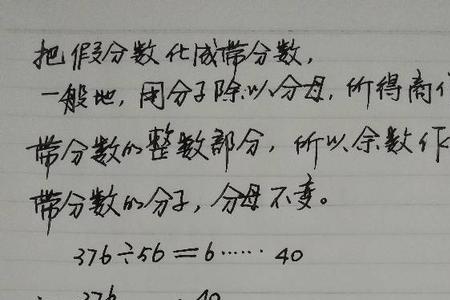 把假分数化成带分数，
一般地，用分子除以分母，所得商作
带分数的整数部分，所以余数作
带分数的分子，分母不变。
376÷56=6……40
376 40